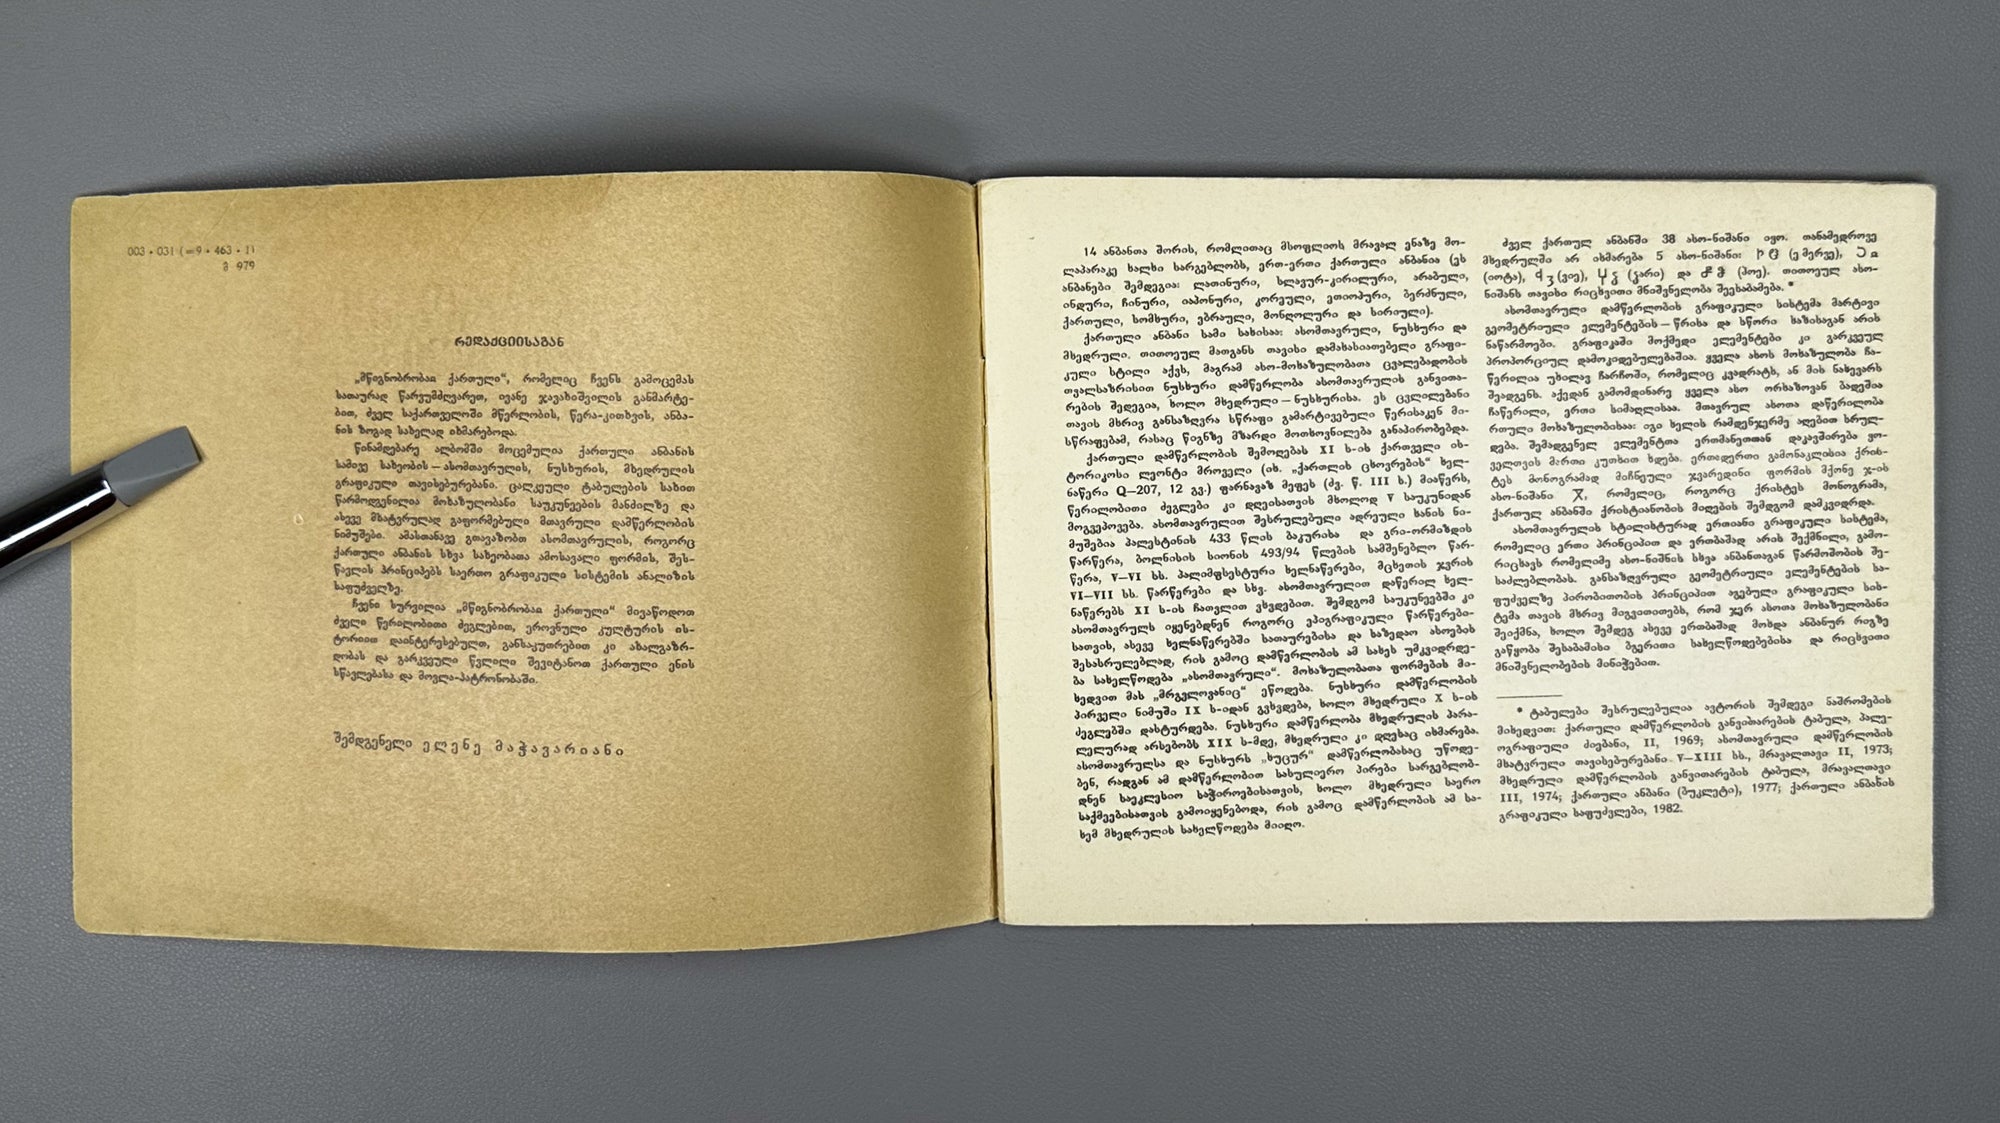 003 • 031 (=9 • 463 • 1)
მ 979
რედაქციისაგან
„მწიგნობრობაჲ ქართული“, რომელიც ჩვენს გამოცემას
სათაურად წარვუმძღვარეთ, ივანე ჯავახიშვილის განმარტე-
ბით, ძველ საქართველოში მწერლობის, წერა-კითხვის, ანბა-
ნის ზოგად სახელად იხმარებოდა.
წინამდებარე ალბომში მოცემულია ქართული ანბანის
სამივე სახეობის — ასომთავრულის, ნუსხურის, მხედრულის
გრაფიკული თავისებურებანი. ცალკეული ტაბულების სახით
წარმოდგენილია მოხაზულობანი საუკუნეების მანძილზე და
ასევე მხატვრულად გაფორმებული მთავრული დამწერლობის
ნიმუშები. ამასთანავე გთავაზობთ ასომთავრულის, როგორც
ქართული ანბანის სხვა სახეობათა ამოსავალი ფორმის, შეს-
წავლის პრინციპებს საერთო გრაფიკული სისტემის ანალიზის
საფუძველზე.
ჩვენი სურვილია „მწიგნობრობაჲ ქართული“ მივაწოდოთ
ძველი წერილობითი ძეგლებით, ეროვნული კულტურის ის-
ტორიით დაინტერესებულთ, განსაკუთრებით კი ახალგაზრ-
დობას და გარკვეული წვლილი შევიტანოთ ქართული ენის
სწავლებასა და მოვლა-პატრონობაში.
შემდგენელი ელენე მაჭავარიანი
14 ანბანთა შორის, რომლითაც მსოფლიოს მრავალ ენაზე მო-
ლაპარაკე ხალხი სარგებლობს, ერთ-ერთი ქართული ანბანია (ეს
ანბანები შემდეგია: ლათინური, სლავურ-კირილური, არაბული,
ინდური, ჩინური, იაპონური, კორეული, ეთიოპური, ბერძნული,
ქართული, სომხური, ებრაული, მონღოლური და სირიული).
ქართული ანბანი სამი სახისაა: ასომთავრული, ნუსხური და
მხედრული. თითოეულ მათგანს თავისი დამახასიათებელი გრაფი-
კული სტილი აქვს, მაგრამ ასო-მოხაზულობათა ცვალებადობის
თვალსაზრისით ნუსხური დამწერლობა ასომთავრულის განვითა-
რების შედეგია, ხოლო მხედრული — ნუსხურისა. ეს ცვლილებანი
თავის მხრივ განსაზღვრა სწრაფი გამარტივებული წერისაკენ მი-
სწრაფებამ, რასაც წიგნზე მზარდი მოთხოვნილება განაპირობებდა.
ქართული დამწერლობის შემოღებას XI ს-ის ქართველი ის-
ტორიკოსი ლეონტი მროველი (იხ. „ქართლის ცხოვრების“ ხელ-
ნაწერი Q—207, 12 გვ.) ფარნავაზ მეფეს (ძვ. წ. III ს.) მიაწერს,
წერილობითი ძეგლები კი დღეისათვის მხოლოდ V საუკუნიდან
მოგვეპოვება. ასომთავრულით შესრულებული ადრეული ხანის ნი-
მუშებია პალესტინის 433 წლის ბაკურისა და გრი-ორმიზდის
წარწერა, ბოლნისის სიონის 493/94 წლების სამშენებლო წარ-
წერა, V—VI სს. პალიმფსესტური ხელნაწერები, მცხეთის ჯვრის
VI—VII სს. წარწერები და სხვ. ასომთავრულით დაწერილ ხელ-
ნაწერებს XI ს-ის ჩათვლით ვხვდებით. შემდგომ საუკუნეებში კი
ასომთავრულს იყენებდნენ როგორც ეპიგრაფიკული წარწერები-
სათვის, ასევე ხელნაწერებში სათაურებისა და საზედაო ასოების
შესასრულებლად, რის გამოც დამწერლობის ამ სახეს უმკვიდრდე-
ბა სახელწოდება „ასომთავრული“. მოხაზულობათა ფორმების მი-
ხედვით მას „მრგვლოვანიც“ ეწოდება. ნუსხური დამწერლობის
პირველი ნიმუში IX ს-იდან გვხვდება, ხოლო მხედრული X ს-ის
ძეგლებში დასტურდება. ნუსხური დამწერლობა მხედრულის პარა-
ლელურად არსებობს XIX ს-მდე, მხედრული კი დღესაც იხმარება.
ასომთავრულსა და ნუსხურს „ხუცურ“ დამწერლობასაც უწოდე-
ბენ, რადგან ამ დამწერლობით სასულიერო პირები სარგებლობ-
დნენ საეკლესიო საჭიროებისათვის, ხოლო მხედრული საერო
საქმეებისათვის გამოიყენებოდა, რის გამოც დამწერლობის ამ სა-
ხემ მხედრულის სახელწოდება მიიღო.
ძველ ქართულ ანბანში 38 ასო-ნიშანი იყო. თანამედროვე
მხედრულში არ იხმარება 5 ასო-ნიშანი: Ⴡ ჱ (ე მერვე), Ⴢ ჲ
(იოტა), Ⴣ ჳ (ვიე), Ⴤ ჴ (ჴარი) და Ⴥ ჵ (ჰოე). თითოეულ ასო-
ნიშანს თავისი რიცხვითი მნიშვნელობა შეესაბამება. *
ასომთავრული დამწერლობის გრაფიკული სისტემა მარტივი
გეომეტრიული ელემენტების — წრისა და სწორი ხაზისაგან არის
ნაწარმოები. გრაფიკაში მოქმედი ელემენტები კი გარკვეულ
პროპორციულ დამოკიდებულებაშია. ყველა ასოს მოხაზულობა ჩა-
წერილია უხილავ ჩარჩოში, რომელიც კვადრატს, ან მის ნახევარს
შეადგენს. აქედან გამომდინარე ყველა ასო ორხაზოვან ბადეშია
ჩაწერილი, ერთი სიმაღლისაა. მთავრულ ასოთა დაწერილობა
რთული მოხაზულობისაა: იგი ხელის რამდენჯერმე აღებით სრულ-
დება. შემადგენელ ელემენტთა ერთმანეთთან დაკავშირება ყო-
ველთვის მართი კუთხით ხდება. ერთადერთი გამონაკლისია ქრის-
ტეს მონოგრამად მიჩნეული ჯვარედინი ფორმის მქონე ჯ-ის
ასო-ნიშანი Ⴟ, რომელიც, როგორც ქრისტეს მონოგრამა,
ქართულ ანბანში ქრისტიანობის მიღების შემდგომ დამკვიდრდა.
ასომთავრულის სტილისტურად ერთიანი გრაფიკული სისტემა,
რომელიც ერთი პრინციპით და ერთბაშად არის შექმნილი, გამო-
რიცხავს რომელიმე ასო-ნიშნის სხვა ანბანთაგან წარმოშობის შე-
საძლებლობას. განსაზღვრული გეომეტრიული ელემენტების სა-
ფუძველზე პირობითობის პრინციპით აგებული გრაფიკული სის-
ტემა თავის მხრივ მიგვითითებს, რომ ჯერ ასოთა მოხაზულობანი
შეიქმნა, ხოლო შემდეგ ასევე ერთბაშად მოხდა ანბანურ რიგზე
გაწყობა შესაბამისი ბგერითი სახელწოდებებისა და რიცხვითი
მნიშვნელობების მინიჭებით.
* ტაბულები შესრულებულია ავტორის შემდეგი ნაშრომების
მიხედვით: ქართული დამწერლობის განვითარების ტაბულა, პალე-
ოგრაფიული ძიებანი, II, 1969; ასომთავრული დამწერლობის
მხატვრული თავისებურებანი V—XIII სს., მრავალთავი II, 1973;
მხედრული დამწერლობის განვითარების ტაბულა, მრავალთავი
III, 1974; ქართული ანბანი (ბუკლეტი), 1977; ქართული ანბანის
გრაფიკული საფუძვლები, 1982.